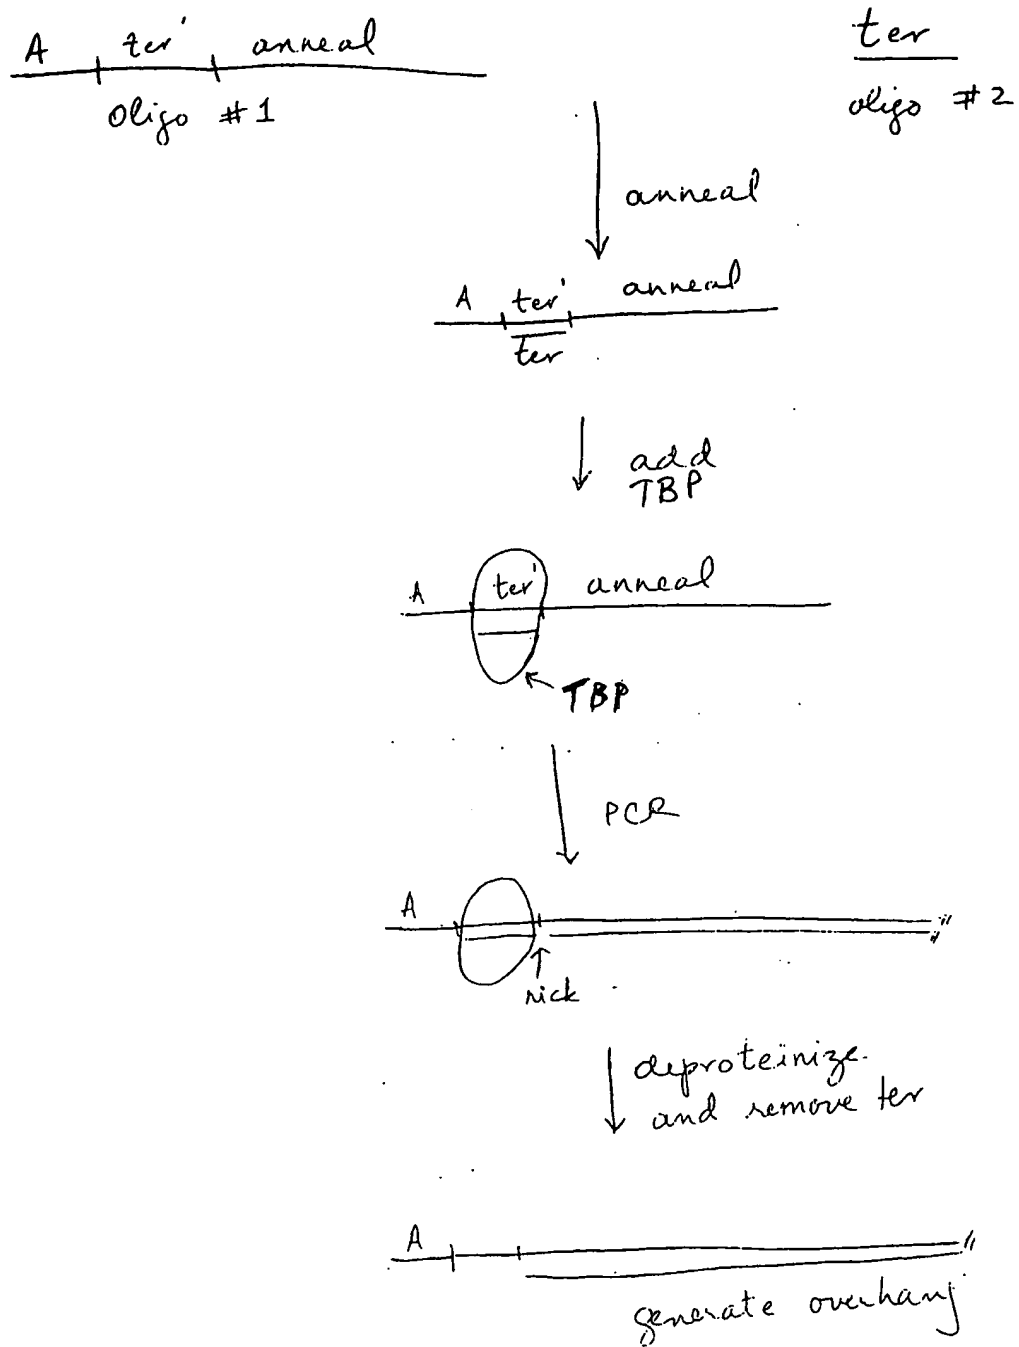 A ter' anneal
ter
Oligo #1
oligo #2
anneal
A ter' anneal
ter
add
TBP
A ter' anneal
TBP
PCR
A
nick
deproteinize
and remove ter
A
generate overhang